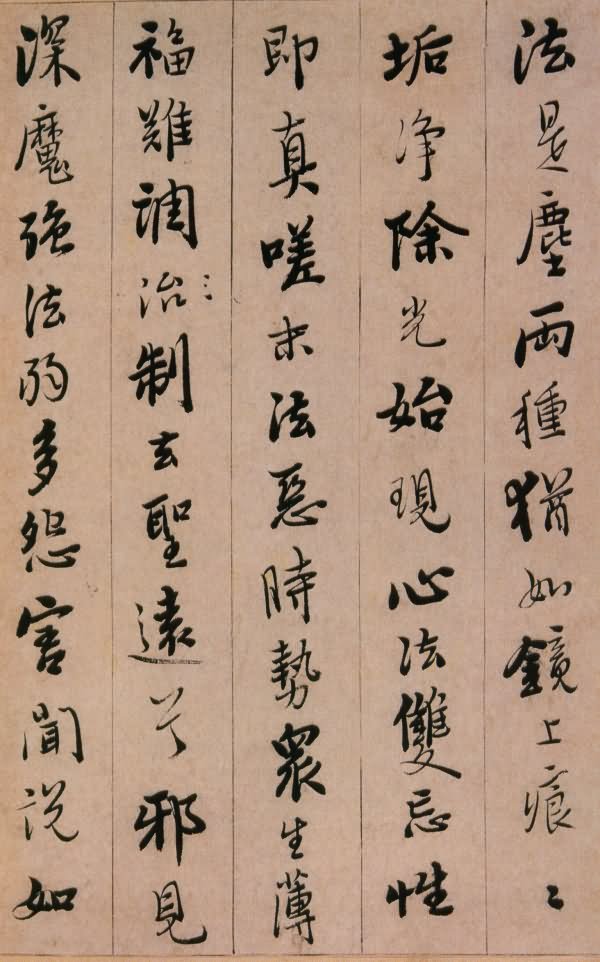 法是塵兩種猶如鏡上痕〻
垢净除光始現心法雙忘性
即真嗟末法惡時勢眾生薄
福難調治制去聖遠兮邪見
深魔強法弱多怨害聞說如